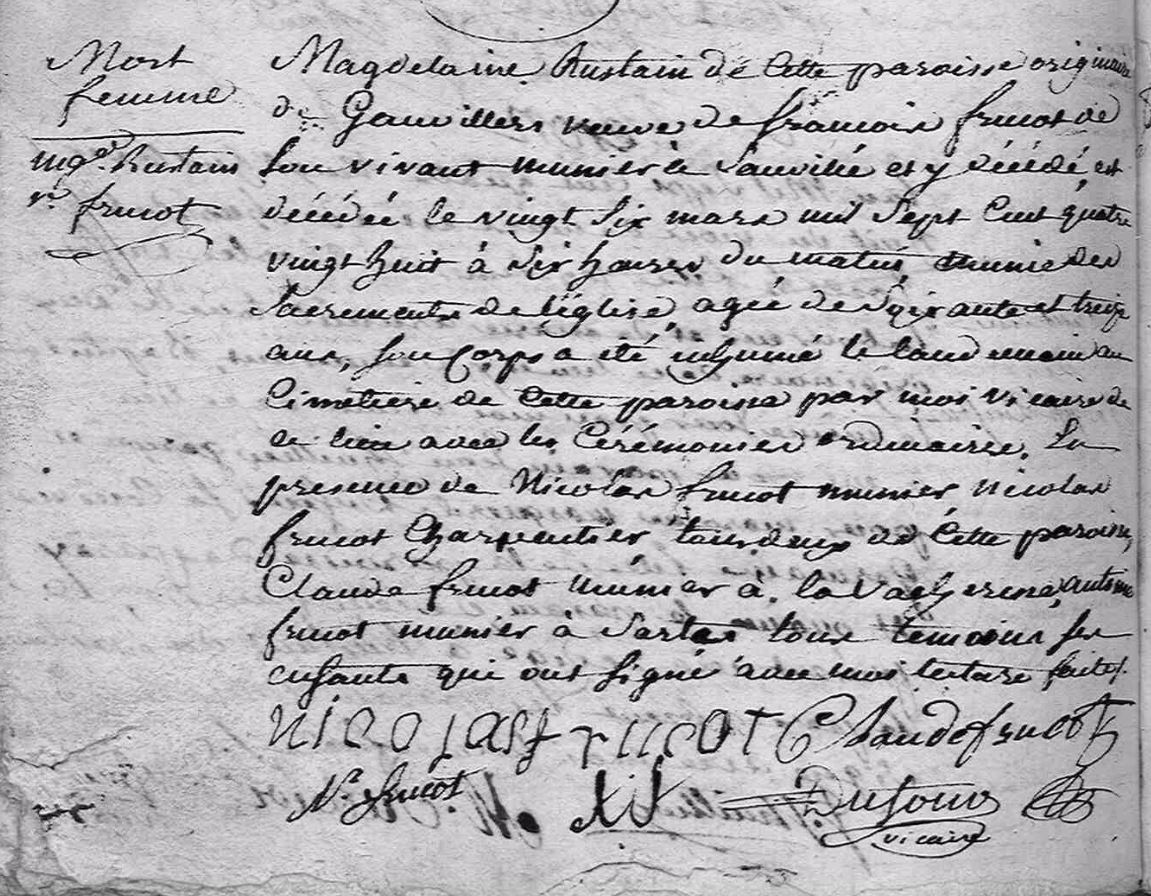 Mort
femme
mg.de Rustain
v.e frucot
Magdelaine Rustain de cette paroisse originaire
de Gonvillers veuve de francois frucot de
son vivant munier à Sauville et y décédé, est
décédée le vingt six mars mil sept cent quatre
vingt huit à six heures du matin, munie des
sacrements de l'église, agée de soixante et treize
ans, son corps a été inhumé le landemain au
Cimetiere de cette paroisse par moi vicaire de
ce lieu avec les Cérémonies ordinaires. En
presence de Nicolas frucot munier Nicolas
frucot Charpentier tous deux de cette paroisse,
Claude frucot munier à la Vacheresse, antoine
frucot munier à Sartes tous temoins ses
enfants qui ont signé avec moi lecture faite.
nicolas frucot Claude frucot
N.s frucot
vicaire